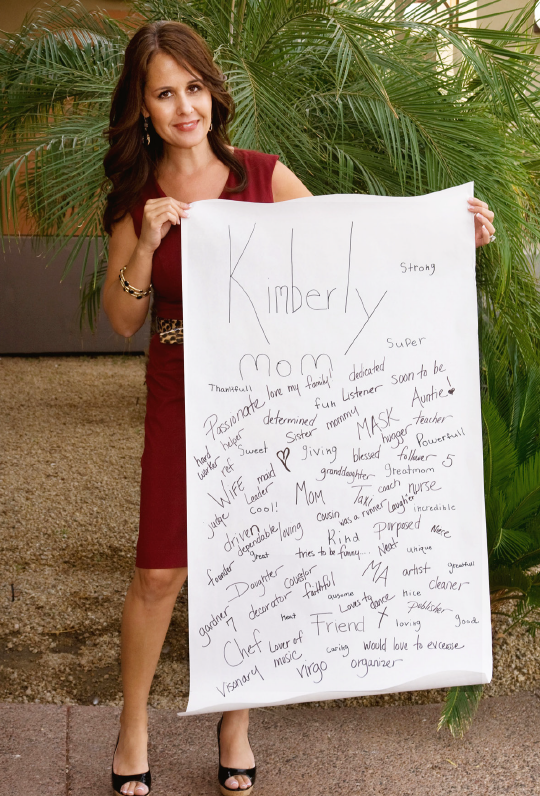 Kimberly
Strong
Super
mom
Thankfull love my family dedicated
Passionate fun Listener soon to be
Auntie!
hard helper determined mommy MASK teacher
worker vet Sweet Sister giving blessed hugger Powerfull
WIFE maid granddaughter follower greatmom 5
judge Leader Mom Taxi coach nurse
cool! cousin was a runner Laughter incredible
driven dependable loving Kind purposed Niece
founder great tries to be funny.... Neat unique
Daughter MA artist greatfull
gardner decorator faithful cleaner
7 ausume Loves to dance nice publisher
Chef heat Friend X loving goode
Lover of music caring would love to excercise
visonary virgo organizer